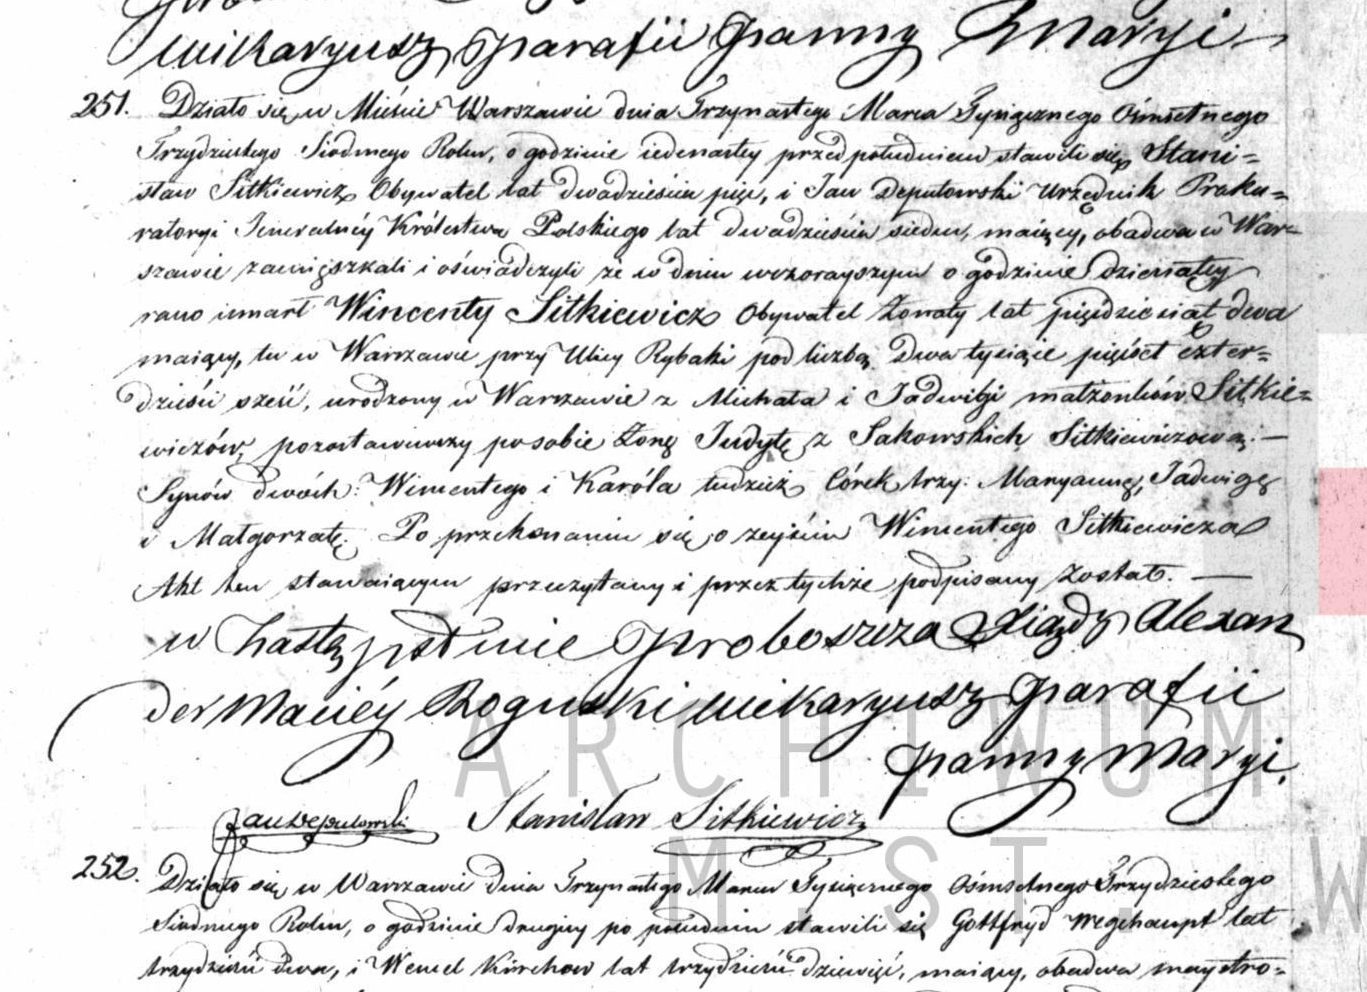 wikaryusz parafii Panny Maryi
251. Działo się w Mieście Warszawie dnia Trzynastego Marca Tysiącznego Ośmsetnego
Trzydziestego Siodmego Roku, o godzinie iedenastey przed południem stawili się Stani=
sław Sitkiewicz Obywatel lat dwadzieścia pięć, i Jan Deputowski Urzędnik Proku=
ratoryi Jeneralnéy Królestwa Polskiego lat dwadzieścia siedm, maiący, obadwa w War=
szawie zamięszkali i oświadczyli że w dniu wczorayszym o godzinie dziesiątey
rano umarł Wincenty Sitkiewicz Obywatel Żonaty lat pięćdziesiąt dwa
maiący, tu w Warszawie przy Ulicy Rybaki pod liczbą Dwa tysiące pięćset czter=
dzieści sześć, urodzony w Warszawie z Michała i Jadwigi małżonków Sitkie=
wiczów, pozostawiwszy po sobie Żonę Judytę z Sakowskich Sitkiewiczową. —
Synów dwóch: Wincentego i Karóla tudzież Córek trzy: Maryannę, Jadwigę
i Małgorzatę. Po przekonaniu się o zeyściu Wincentego Sitkiewicza
Akt ten stawaiącym przeczytany i przez tychże podpisany został. —
w Zastępstwie Proboszcza Xiądz Alexan
der Maciéy Roguski wikaryusz parafii
Panny Maryi.
Jan Deputowski Stanisław Sitkiewicz
ARCHIWUM
M. ST. W
252. Działo się w Warszawie dnia Trzynastego Marca Tysiącznego Ośmsetnego Trzydziestego
Siodmego Roku, o godzinie drugiey po południu stawili się Gottfryd Wegehaupt lat
trzydzieści dwa, i Wencel Kirchow lat trzydzieści dziewięć, maiący, obadwa maystro=